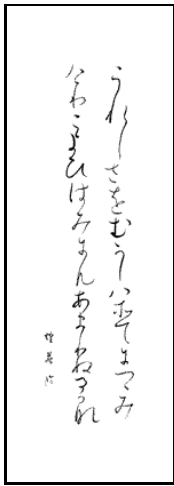 うれしさをむかしハそてにつゝみ
けりこよひはみにもあまりぬるかな